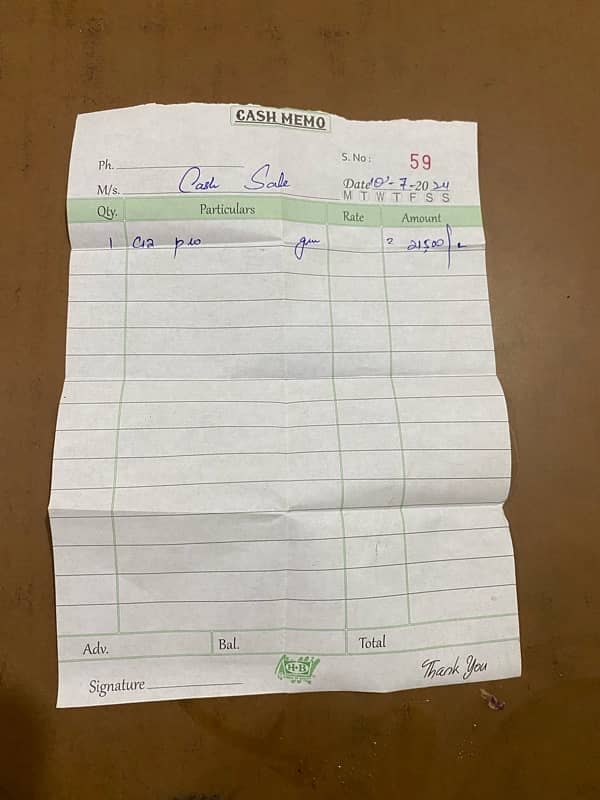 CASH MEMO
Ph.
S. No: 59
M/s. Cash Sale
Date -7-2024
M T W T F S S
Qty. Particulars Rate Amount
1 pro gun
Adv. Bal. Total
H·B
Signature
Thank You